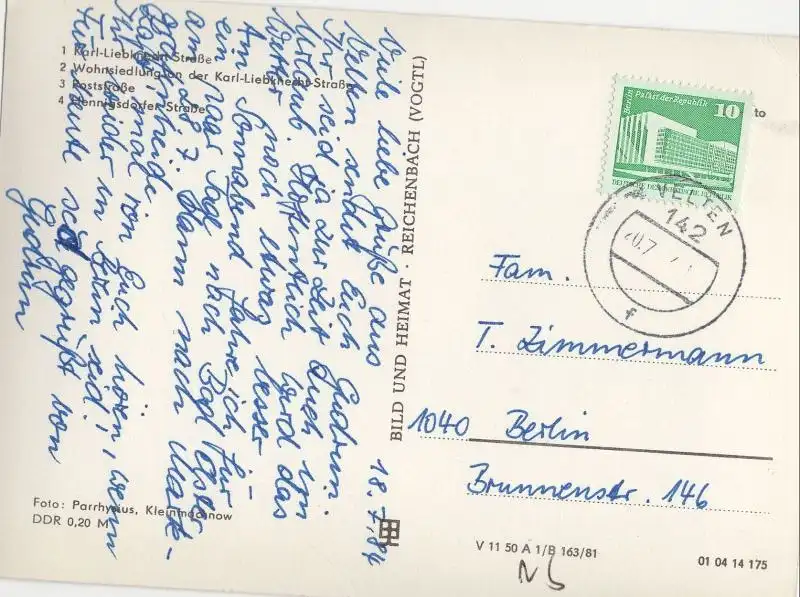 1 Karl-Liebknecht-Straße
2 Wohnsiedlung an der Karl-Liebknecht-Straße
3 Poststraße
4 Hennigsdorfer Straße
18.7.84
Viele liebe Grüße aus
Velten sendet Euch Gudrun.
Ihr seid ja zur Zeit auch im
Urlaub. Hoffentlich wird das
Wetter noch etwas besser.
Am Sonnabend fahre ich für
ein paar Tage nach Bad
am 28.7. dann nach
Laßt mal von Euch hören, wenn
Ihr wieder in Berlin seid,
Für heute seid gegrüßt von
Gudrun
Foto: Parrhysius, Kleinmachnow
DDR 0,20 M
BILD UND HEIMAT · REICHENBACH (VOGTL)
Berlin Palast der Republik 10
DEUTSCHE DEMOKRATISCHE REPUBLIK
VELTEN
142
20.7
f
to
Fam.
T. Zimmermann
1040 Berlin
Brunnenstr. 146
V 11 50 A 1/B 163/81
01 04 14 175